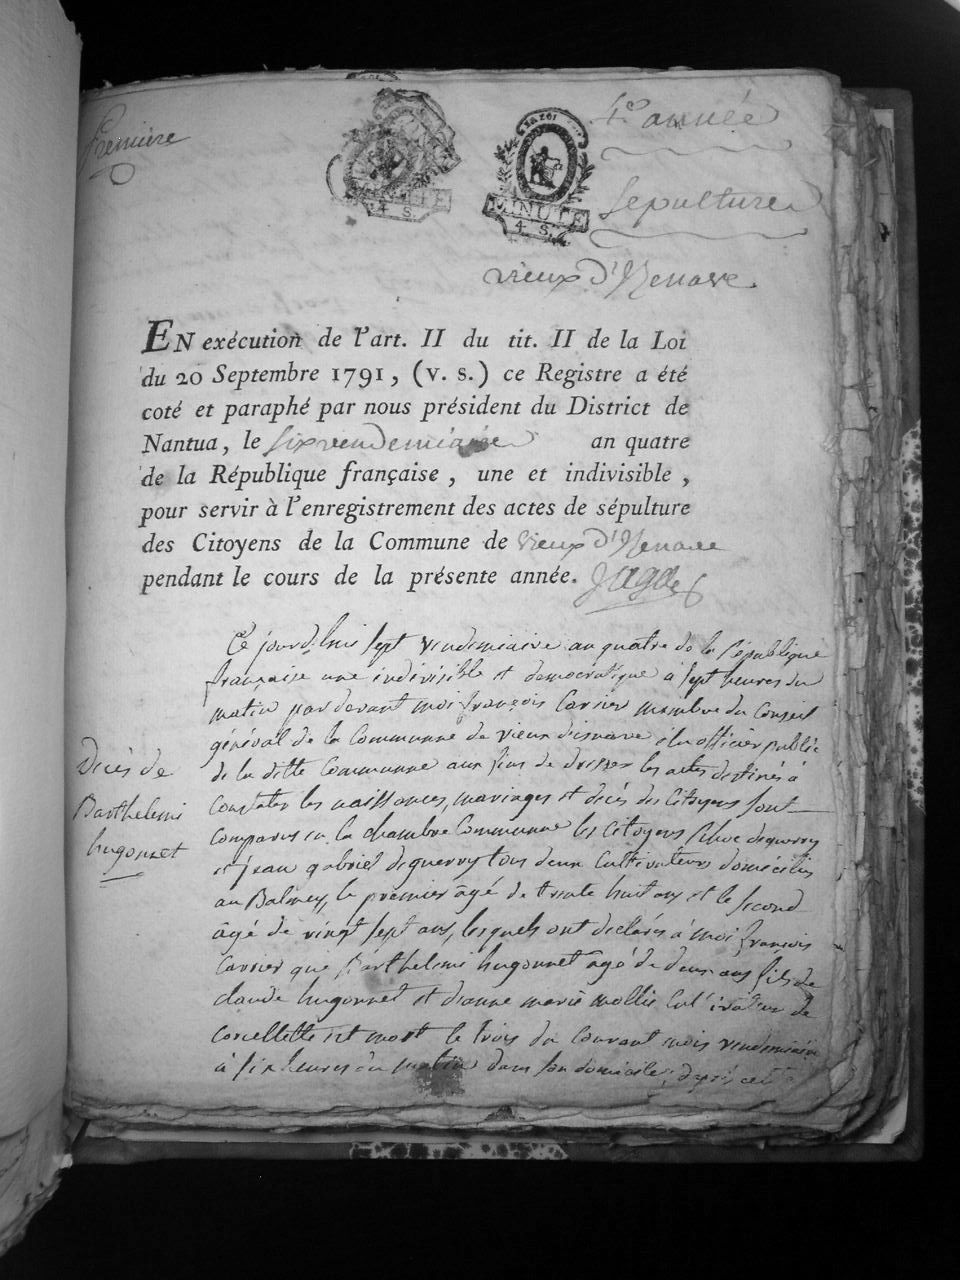 Premiere
4e année
Sepulture
MINUTE
4 S.
MINUTE
4 S.
vieux d'Izenave
EN exécution de l'art. II du tit. II de la Loi
du 20 Septembre 1791, (v. s.) ce Registre a été
coté et paraphé par nous président du District de
Nantua, le six vendemiaire an quatre
de la République française, une et indivisible,
pour servir à l'enregistrement des actes de sépulture
des Citoyens de la Commune de vieux d'Izenave
pendant le cours de la présente année.
Ce jourd'hui sept vendemiaire an quatre de la république
française une indivisible et democratique à sept heures du
matin pardevant moi françois Carrier membre du Conseil
général de la Commune de vieux disnave élu officier public
de la ditte Commune aux fins de dresser les actes destinés à
Constater les naissances, mariages et décès des Citoyens sont
Comparus en la chambre Commune les Citoyens deguerry
et jean gabriel deguerry tous deux Cultivateurs domiciliés
au Balmey, le premier âgé de trente huit ans et le second
âgé de vingt sept ans, lesquels ont declarés à moi françois
Carrier que Barthelemi hugonnet âgé de deux ans fils de
claude hugonnet et d'anne marie mollie Cultivateur de
Corcellette est mort le trois du Courant mois vendemiaire
à six heures du matin dans son domicile, d'après cette
Décès de
Barthelemi
hugonnet